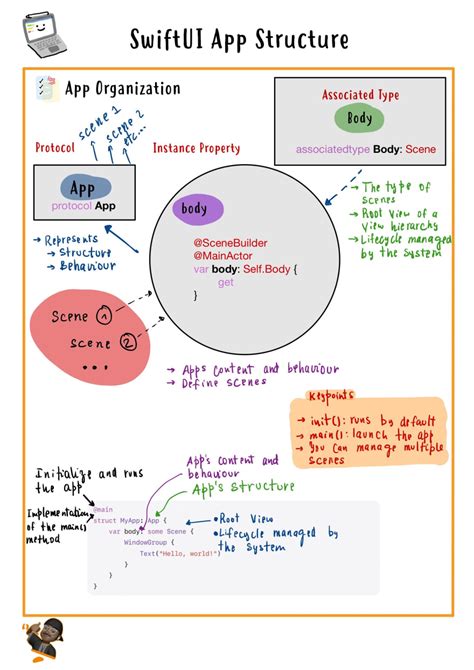 SwiftUI App Structure
App Organization
scene 1
scene 2
etc...
Protocol
Instance Property
Associated Type
Body
associatedtype Body: Scene
App
protocol App
body
@SceneBuilder
@MainActor
var body: Self.Body {
get
}
→ The type of
scenes
→ Root View of a
view hierarchy
→ Lifecycle managed
by the system
→ Represents
→ Structure
→ Behaviour
Scene 1
scene 2
...
→ Apps content and behaviour
→ Define scenes
Keypoints
→ init(): runs by default
→ main(): launch the app
→ You can manage multiple
scenes
App's content and
behaviour
App's structure
Initialize and runs
the app
Implementation
of the main()
method
@main
struct MyApp: App {
var body: some Scene {
WindowGroup {
Text("Hello, world!")
}
}
}
•Root View
•Lifecycle managed by
the system